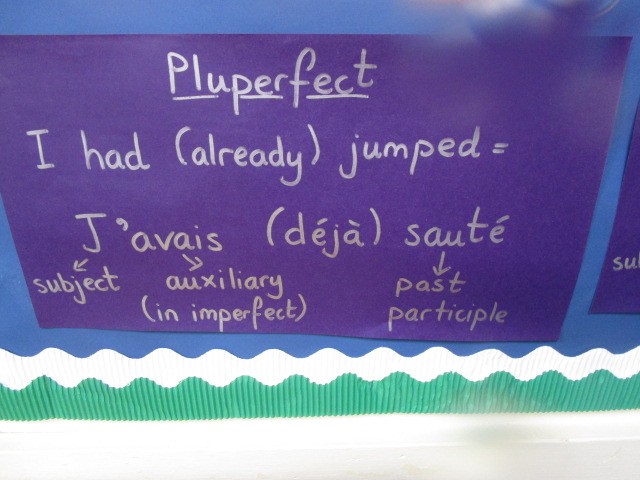 Pluperfect
I had (already) jumped =
J'avais (déjà) sauté
subject auxiliary past
(in imperfect) participle